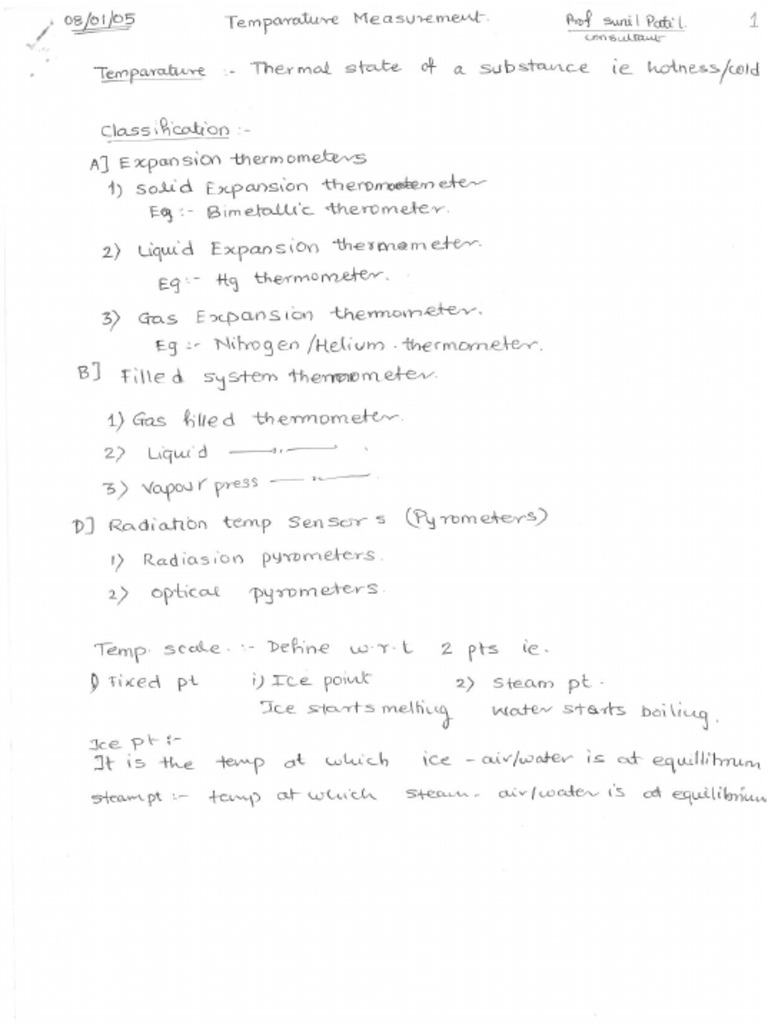 08/01/05 Temparature Measurement. Prof Sunil Patil 1
consultant
Temparature :- Thermal state of a substance ie hotness/cold
Classification :-
A] Expansion thermometers
1) Solid Expansion
Eg :- Bimetallic therometer.
2) Liquid Expansion thermometer.
Eg :- Hg thermometer.
3) Gas Expansion thermometer.
Eg :- Nitrogen/Helium. thermometer.
B] Filled system
1) Gas filled thermometer.
2) Liquid —〃—
3) Vapour press —〃—
D] Radiation temp Sensors (Pyrometers)
1) Radiasion pyrometers.
2) Optical pyrometers.
Temp. scale. :- Define w.r.t 2 pts ie.
1) Fixed pt i) Ice point 2) steam pt.
Ice starts melting water starts boiling.
Ice pt :-
It is the temp at which ice - air/water is at equillibrium
steam pt :- temp at which steam - air/water is at equilibrium